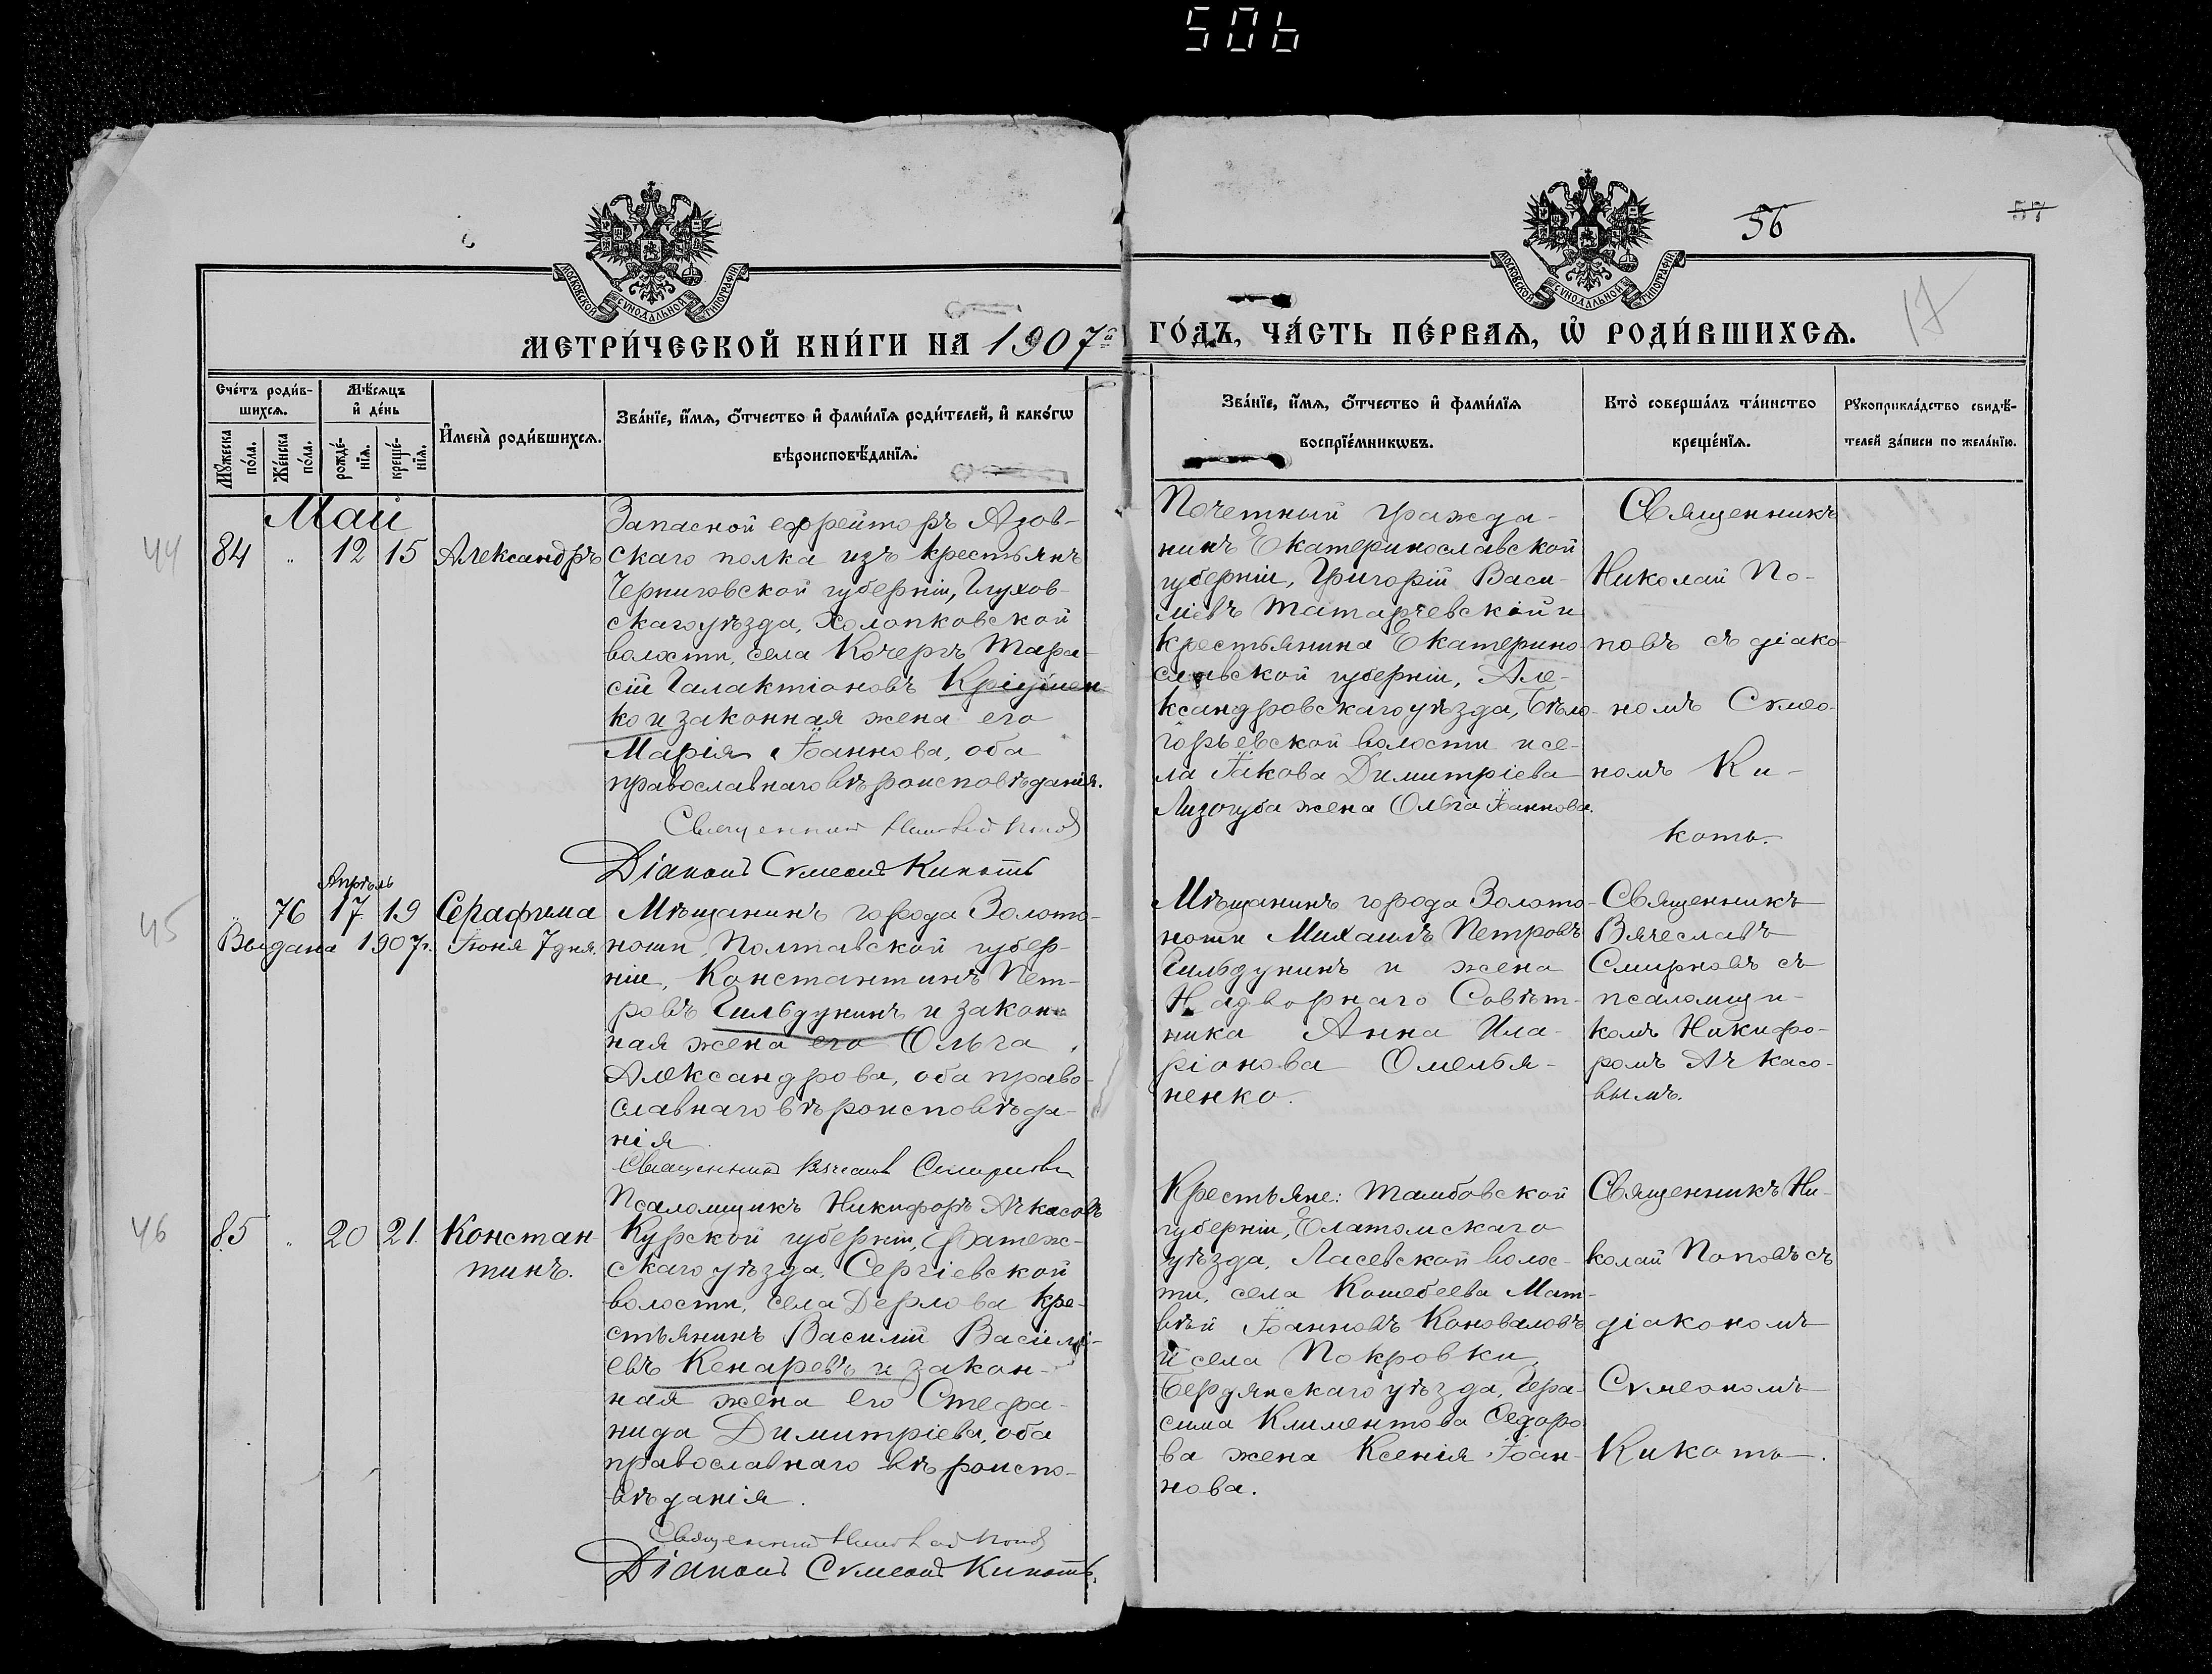 506
56
57
17
МОСКОВСКОЙ СѴНОДАЛЬНОЙ ТИПОГРАФІИ
МОСКОВСКОЙ СѴНОДАЛЬНОЙ ТИПОГРАФІИ
МЕТРИ́ЧЕСКОЙ КНИ́ГИ НА 1907й ГО́ДЪ, ЧА́СТЬ ПЕ́РВАѦ, Ѡ҆ РОДИ́ВШИХСѦ.
Сче́тъ роди́в-
шихсѧ.
Мꙋ́жеска по́ла.
Же́нска по́ла.
Мѣ́сѧцъ
и҆ де́нь
рожде́-
нїѧ.
креще́-
нїѧ.
И҆мена̀ роди́вшихсѧ.
Зва́нїе, и҆́мѧ, ѻ҆́тчество и҆ фами́лїѧ роди́телей, и҆ како́гѡ
вѣроисповѣ́данїѧ.
Зва́нїе, и҆́мѧ, ѻ҆́тчество и҆ фами́лїѧ
воспрїе́мникѡвъ.
Кто̀ соверша́лъ та́инство
креще́нїѧ.
Рꙋкоприкла́дство свидѣ́-
телей за́писи по жела́нїю.
Май
44 84 „ 12 15 Александръ
Запасной ефрейторъ Азов-
скаго полка изъ крестьянъ
Черниговской губерніи, Глухов-
скаго уѣзда, Холопковской
волости, села Кочергъ Тара-
сій Галактіоновъ
ко и законная жена его
Марія Іоаннова, оба
православнаго вѣроисповѣданія.
Священникъ Николай Поповъ
Діаконъ Сѵмеонъ Кикоть
Почетный гражда-
нинъ Екатеринославской
губерніи, Григорій Васи-
ліевъ Татарчевскій и
крестьянина Екатерино-
славской губерніи, Але-
ксандровскаго уѣзда, Бѣло-
горьевской волости и се-
ла Іакова Димитріева
Лизогуба жена Ольга Іоаннова.
Священникъ
Николай По-
повъ съ діако-
номъ Сѵмео-
номъ Ки-
коть.
Апрѣль
45 „ 76 17 19 Серафима
Выдана 1907г. Іюня 7 дня.
Мѣщанинъ города Золото-
ноши, Полтавской губер-
ніи, Константинъ Пет-
ровъ Гильдунинъ и закон-
ная жена его Ольга
Александрова, оба право-
славнаго вѣроисповѣда-
нія.
Священникъ Вячеславъ Смирновъ
Псаломщикъ Никифоръ Ачкасовъ
Мѣщанинъ города Золото-
ноши Михаилъ Петровъ
Гильдунинъ и жена
Надворнаго Совѣт-
ника Анна Ила-
ріонова Омелья-
ненко.
Священникъ
Вячеславъ
Смирновъ съ
псаломщи-
комъ Никифо-
ромъ Ачкасо-
вымъ.
46 85 „ 20 21. Констан-
тинъ.
Курской губерніи, Фатеж-
скаго уѣзда, Сергіевской
волости, села Дерлова кре-
стьянинъ Василій Василі-
евъ Кенаревъ и закон-
ная жена его Стефа-
нида Димитріева, оба
православнаго вѣроиспо-
вѣданія.
Священникъ Николай Поповъ
Діаконъ Сѵмеонъ Кикоть.
Крестьяне: Тамбовской
губерніи, Елатомскаго
уѣзда, Ласевской волос-
ти, села Кошебеева Мат-
вѣй Іоанновъ Коноваловъ
и села Покровки,
Бердянскаго уѣзда, Гера-
сима Климентова Седоро-
ва жена Ксенія Іоан-
нова.
Священникъ Ни-
колай Поповъ съ
діакономъ
Сѵмеономъ
Кикоть.